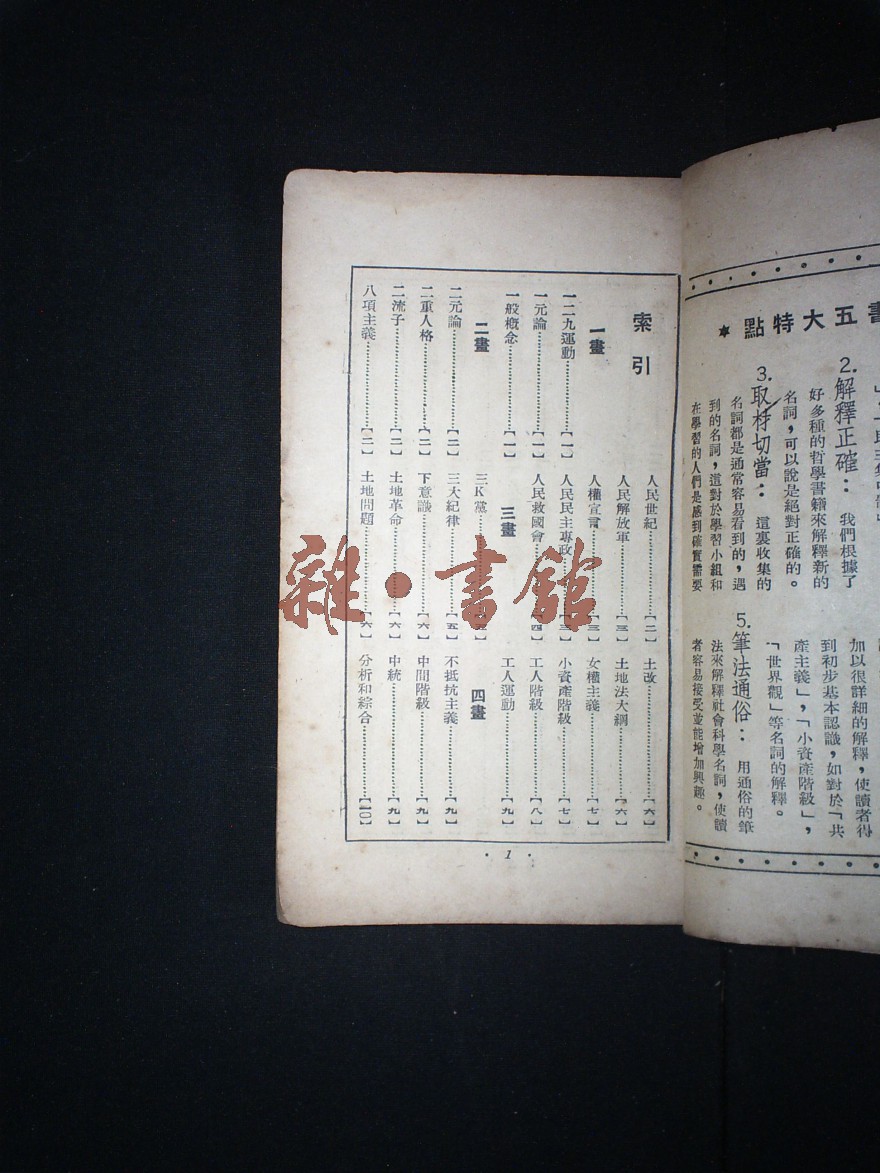 書五大特點
2.解釋正確：我們根據了
好多種的哲學書籍來解釋新的
名詞，可以說是絕對正確的。
3.取材切當：這裏收集的
名詞都是通常容易看到的，遇
到的名詞，這對於學習小組和
在學習的人們是感到確實需要
加以很詳細的解釋，使讀者得
到初步基本認識，如對於「共
產主義」，「小資產階級」，
「世界觀」等名詞的解釋。
5.筆法通俗：用通俗的筆
法來解釋社會科學名詞，使讀
者容易接受並能增加興趣。
索引
一畫
一二九運動……【一】
一元論……【一】
一般概念……【一】
二畫
二元論……【二】
二重人格……【二】
二流子……【二】
八項主義……【二】
人民世紀……【二】
人民解放軍……【三】
人權宣言……【三】
人民民主專政……【三】
人民救國會……【四】
三畫
三K黨……
三大紀律……【五】
下意識……【六】
土地革命……【六】
土地問題……【六】
土改……【六】
土地法大綱……【六】
女權主義……【七】
小資產階級……【七】
工人階級……【八】
工人運動……【九】
四畫
不抵抗主義……【九】
中間階級……【九】
中統……【九】
分析和綜合……【一〇】
·1·
雜·書館